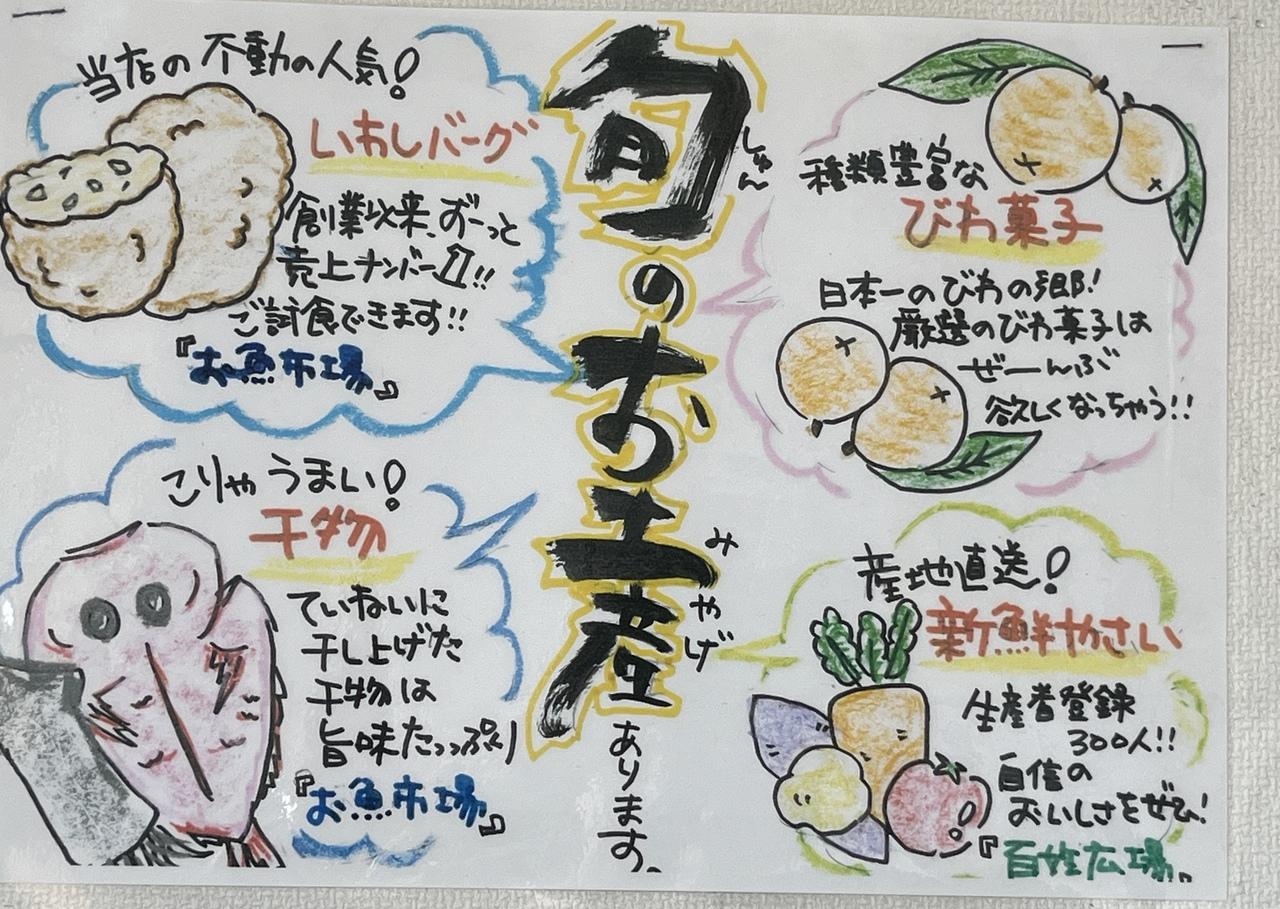 旬のお土産あります。
しゅん
みやげ
種類豊富な
びわ菓子
日本一のびわの郷!
厳選のびわ菓子は
ぜーんぶ
欲しくなっちゃう!!
当店の不動の人気!
いわしバーグ
創業以来、ずーっと
売上ナンバー1!!
ご試食できます!!
『お魚市場』
こりゃうまい!
干物
ていねいに
干し上げた
干物は
旨味たっっぷり
『お魚市場』
産地直送!
新鮮やさい
生産者登録
300人!!
自信の
おいしさをぜひ!
『百姓広場』